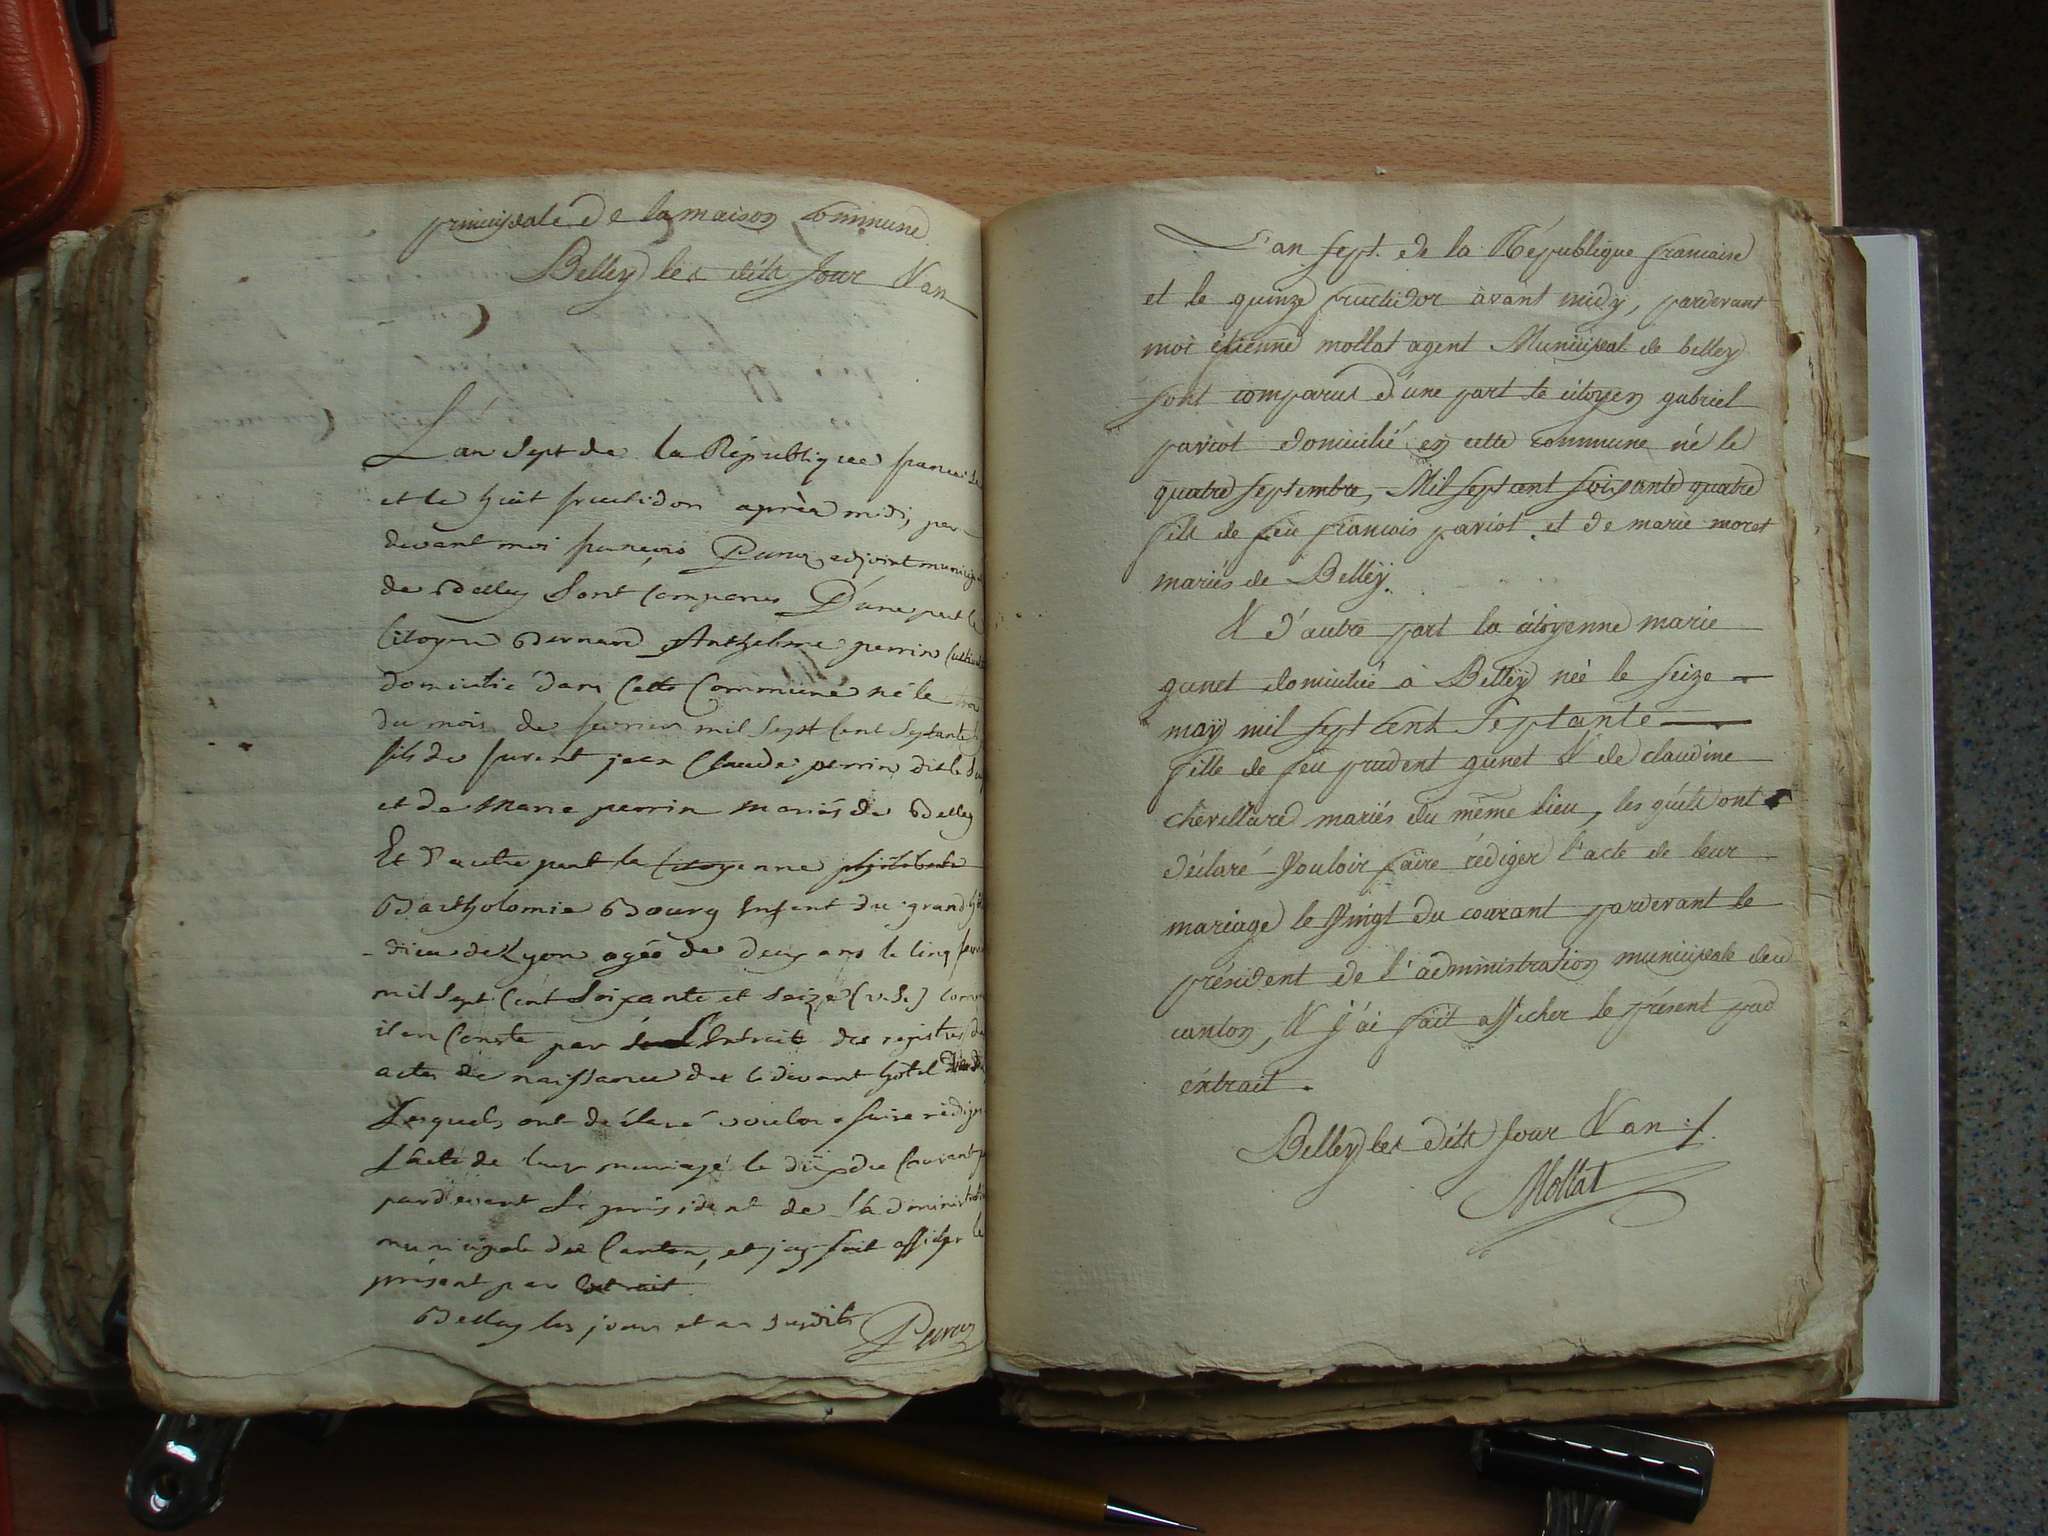 principale de la maison Commune
Belley les dits Jour & an
L'an Sept de la République francaise
et le huit fructidor après midi, par
devant moi françois adjoint municip
de Belley Sont Comparus D'une part le
Citoyen Bernard Anthelme perrin
domicilié dans Cette Commune né le
du mois de fevrier mil Sept Cent Septante
fils de furent jean Claude perrin dit le
et de Marie perrin mariés de Belley
Et d'autre part la Citoyenne philiberte
Bartholomie Bourg Enfent du grand
-dieu de Lyon agée de deux ans le Cinq
mil Sept Cent Soixante et Seize (v. S.)
il en Conste par L'Extrait des registres de
actes de naissance det Cidevant hôtel Dieu
Lesquels ont déclaré vouloir faire rédiger
l'acte de leur mariage le dix du Courant
pardevant Le président de l'administration
municipale det Canton, et j'ay fait afficher le
présent par Extrait
Belley les jours et an Susdits
L'an Sept. de la République francaise
et le quinze fructidor avant midy, pardevant
moi étienne mollat agent Municipal de belley
sont comparus d'une part le citoyen gabriel
paviot domicilié en cette commune né le
quatre Septembre Mil Sept cent Soixante quatre
fils de feu francois paviot et de marie moret
mariés de Belleÿ.
& d'autre part la citoyenne marie
gunet domiciliée à Belleÿ née le Seize
maÿ mil Sept Cent Septante
fille de feu prudent gunet & de claudine
chevillard mariés du même lieu, les quels ont
déclaré Vouloir faire rédiger l'acte de leur
mariage le Vingt du courant pardevant le
président de l'administration municipale deu
canton, & j'ai fait afficher le présent par
éxtrait.
Belley les dits Jour & an :/.
Mollat